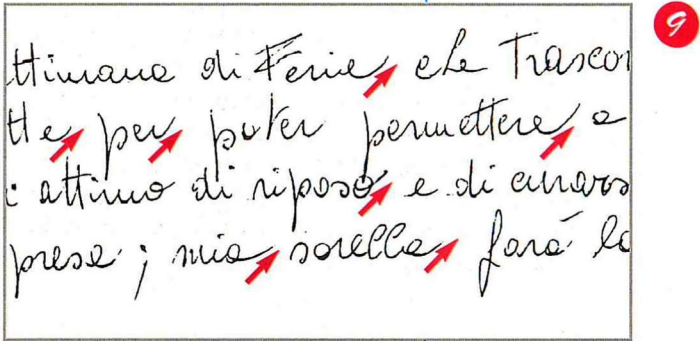 ttimana di Ferie che Trascor
tte per poter permettere a
attimo di riposo e di curars
prese; mia sorella farà la
9